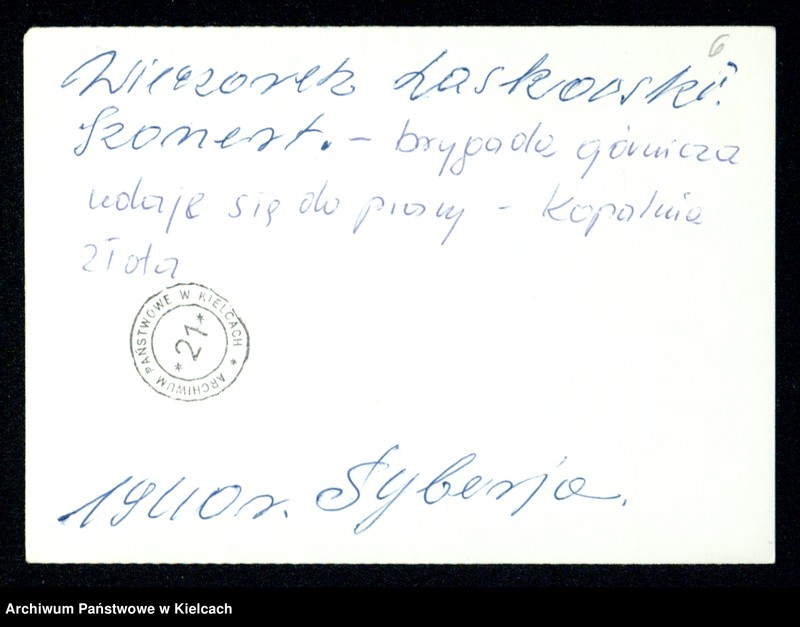 6
Wieczorek Laskowski.
Szonert. – brygada górnicza
udaje się do pracy – kopalnia
złota
ARCHIWUM PAŃSTWOWE W KIELCACH
* 21 *
1940r. Syberja.
Archiwum Państwowe w Kielcach